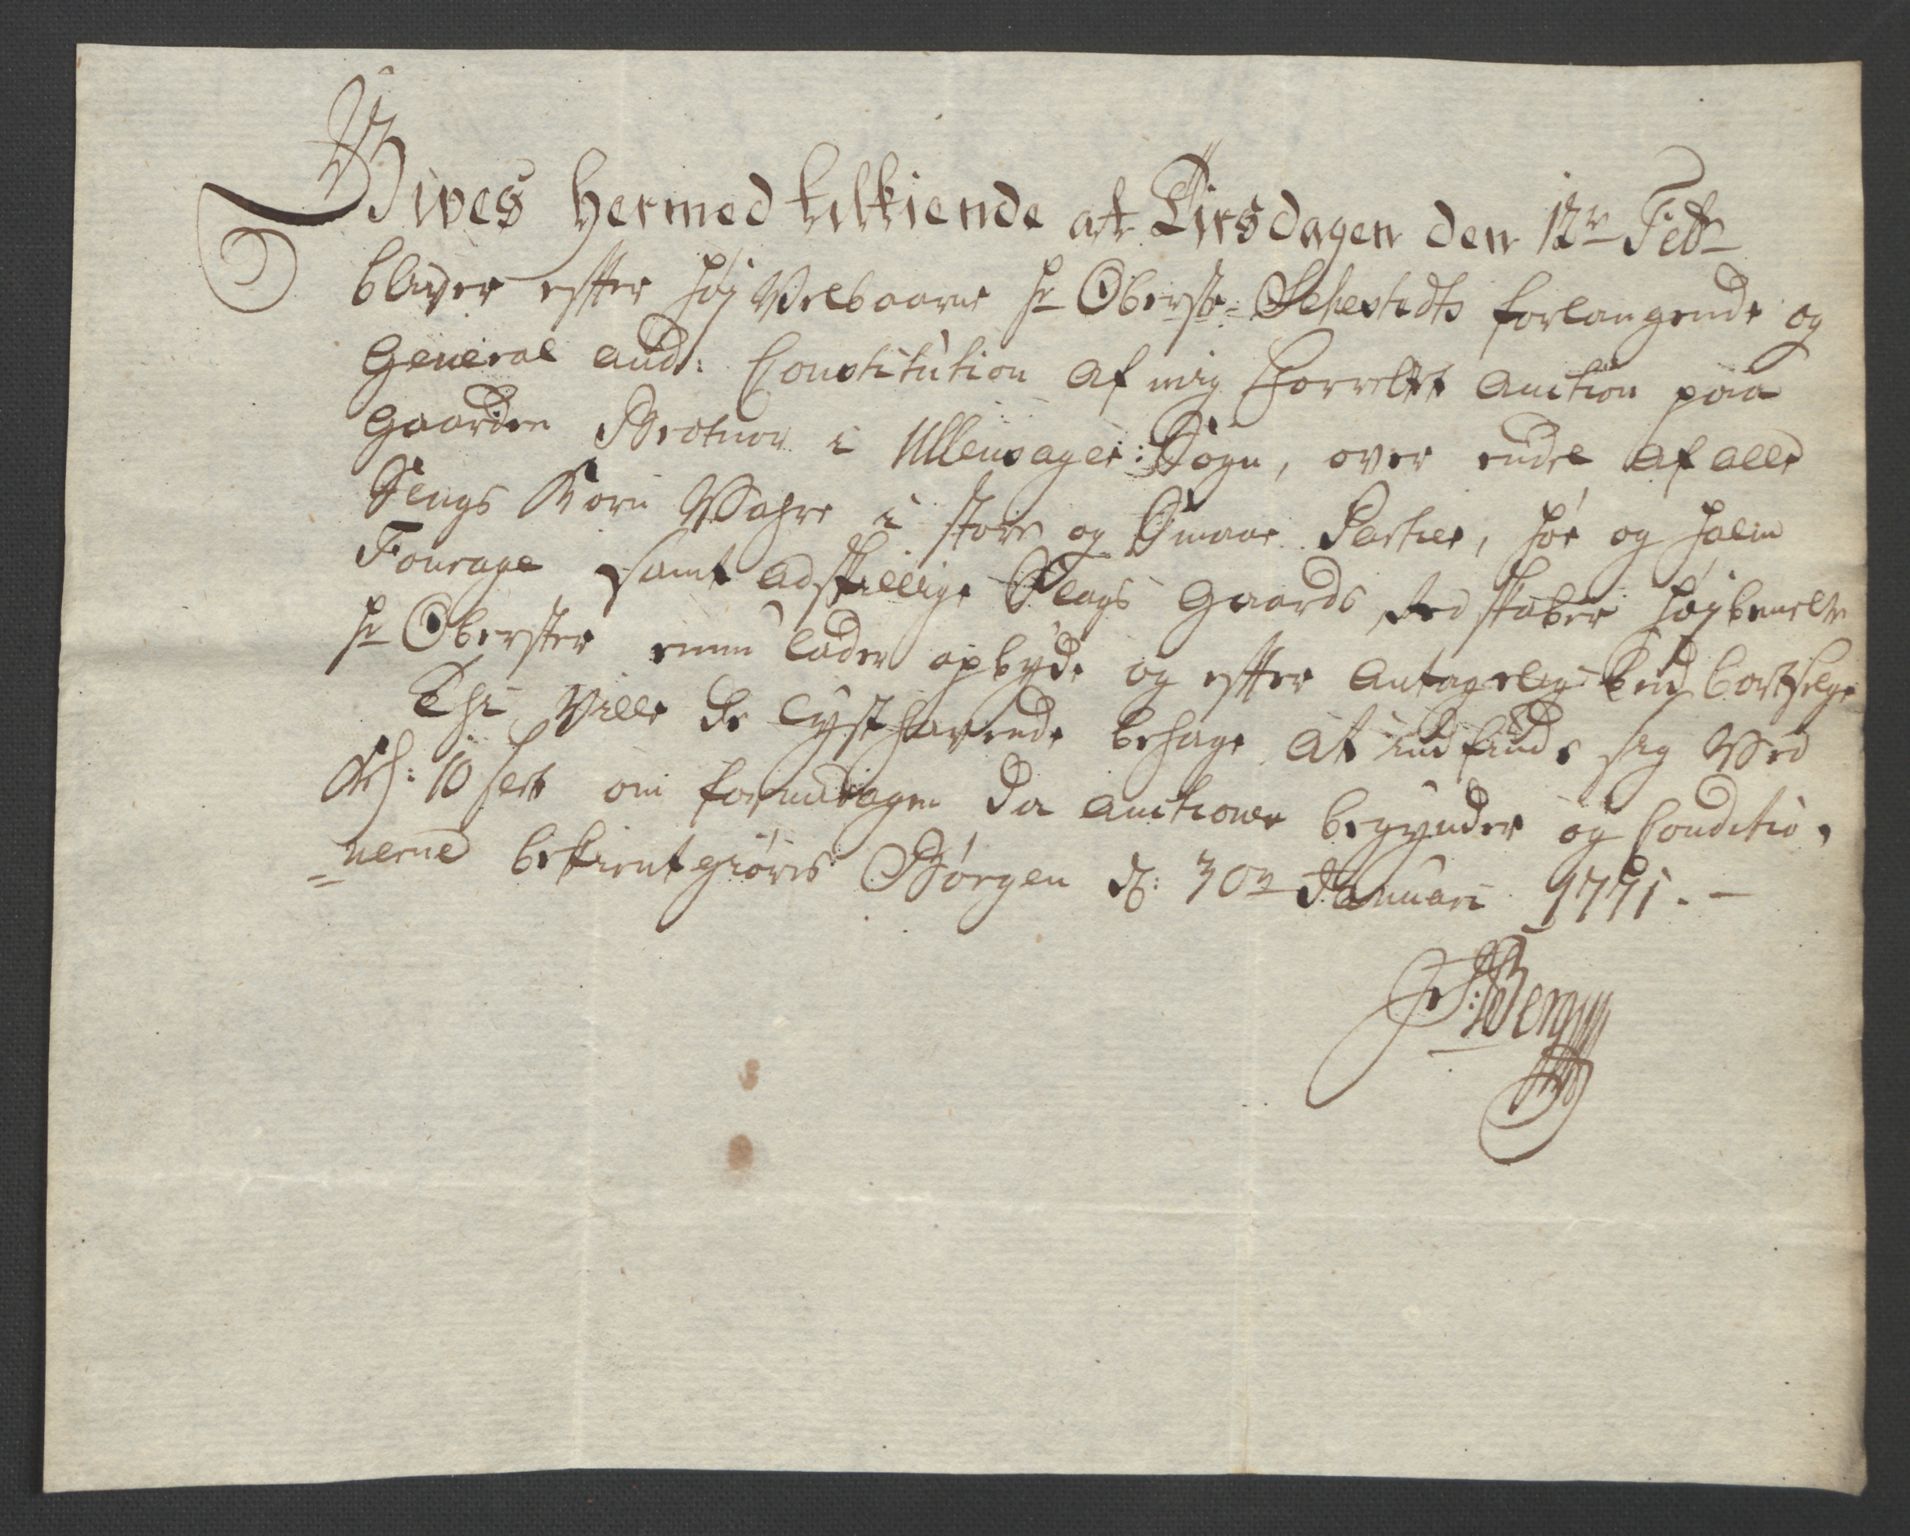 Gives hermed tilkiende at Tirsdagen den 12te Febr
bliver efter Høj Velbaarne Hr Oberste Sehestedts forlangende og
General Aud: Constitution af mig forrettet Auction paa
Gaarden Brotnov i Ullensager Sogn, over endel af alle
Slags Korn Vahre i store og Smaae Partier, høe og halm
Fourage samt adskillige Slags Gaards Redskaber Højbemelte
Hr Oberster lader opbyde og efter Antagelig bud bortselge
Thi Ville de lysthavende behage at indfinde sig Ved
Kl: 10 slett om formidagen da Auctionen begynder og Conditio
nerne bekientgiøres Børgen d: 30te Januari 1771. –
Berg